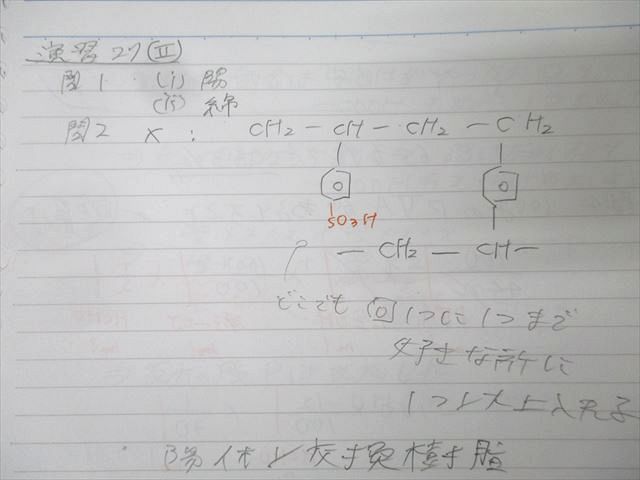 演習27(Ⅱ)
問1 (i) 陽
(ii) 綿
問2 X: CH2 - CH - CH2 - CH2
SO3H
- CH2 - CH -
どこでも 1つに1つまで
好きな所に
1つ以上入れる
陽イオン交換樹脂